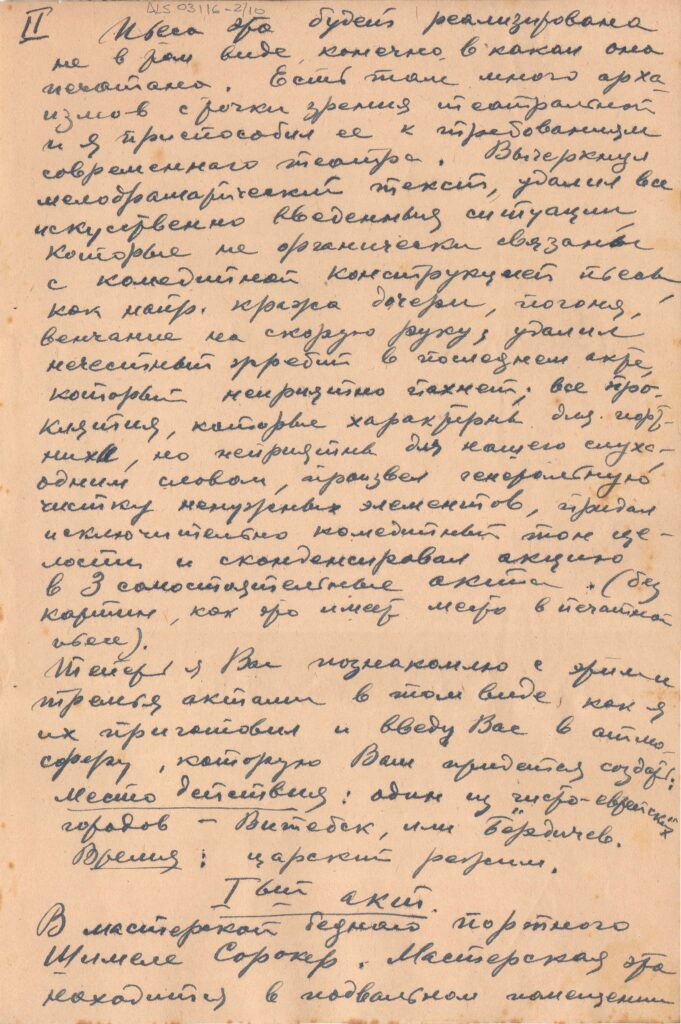 ALS 03116-2/10
II Пьеса эта будет реализирована
не в том виде, конечно, в каком она
печатана. Есть там много арха-
измов с точки зрения театральной
и я приспособил ее к требованиям
современнаго театра. Вычеркнул
мелодраматический текст, удалил все
искуственно введенныя ситуации,
которые не органически связаны
с комедийной конструкцией пьесы,
как напр. кража дочери, погоня,
венчание на скорую руку; удалил
нечестный жребий в последнем акте,
который неприятно пахнет; все про-
клятия, которые характерны для порт-
нихи, но неприятны для нашего слуха,
одним словом, произвел генеральную
чистку ненужных элементов, придал
исключительно комедийный тон це-
лости и сконденсировал акцию
в 3 самостоятельные акта. (без
картин, как это имеет место в печатной
пьесе).
Теперь я Вас познакомлю с этими
тремья актами в том виде, как я
их приготовил и введу Вас в атмо-
сферу, которую Вам придется создать:
Место действия: один из чисто-еврейских
городов – Витебск, или Бердичев.
Время: царский режим.
I ый акт.
В мастерской бедного портного
Шимеле Сорокер. Мастерская эта
находится в подвальном помещении